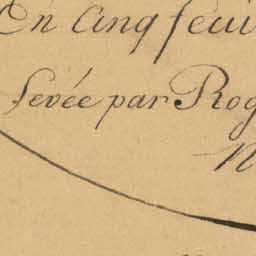 En Cinq feui
Levée par Rog
N